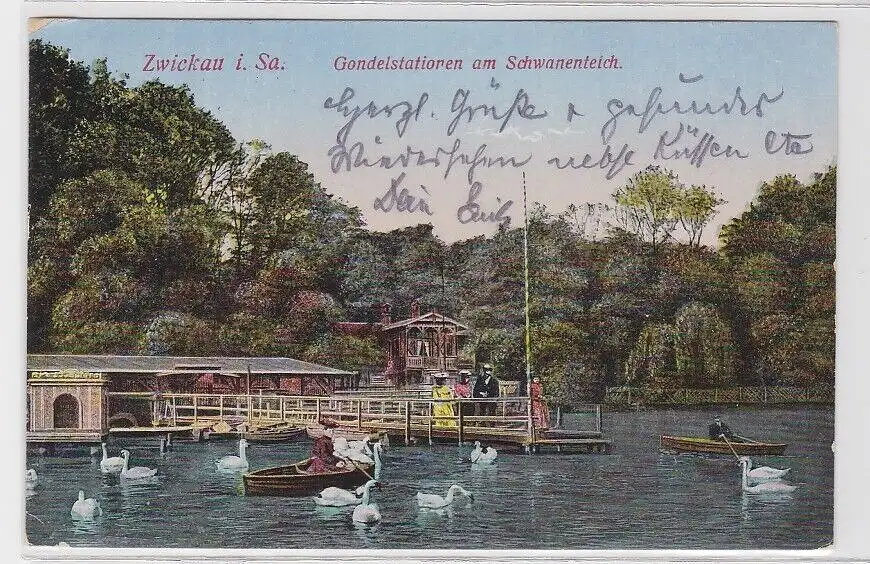 Zwickau i. Sa. Gondelstationen am Schwanenteich.
Herzl. Grüße & gesundes
Wiedersehen nebst Küssen
Dein